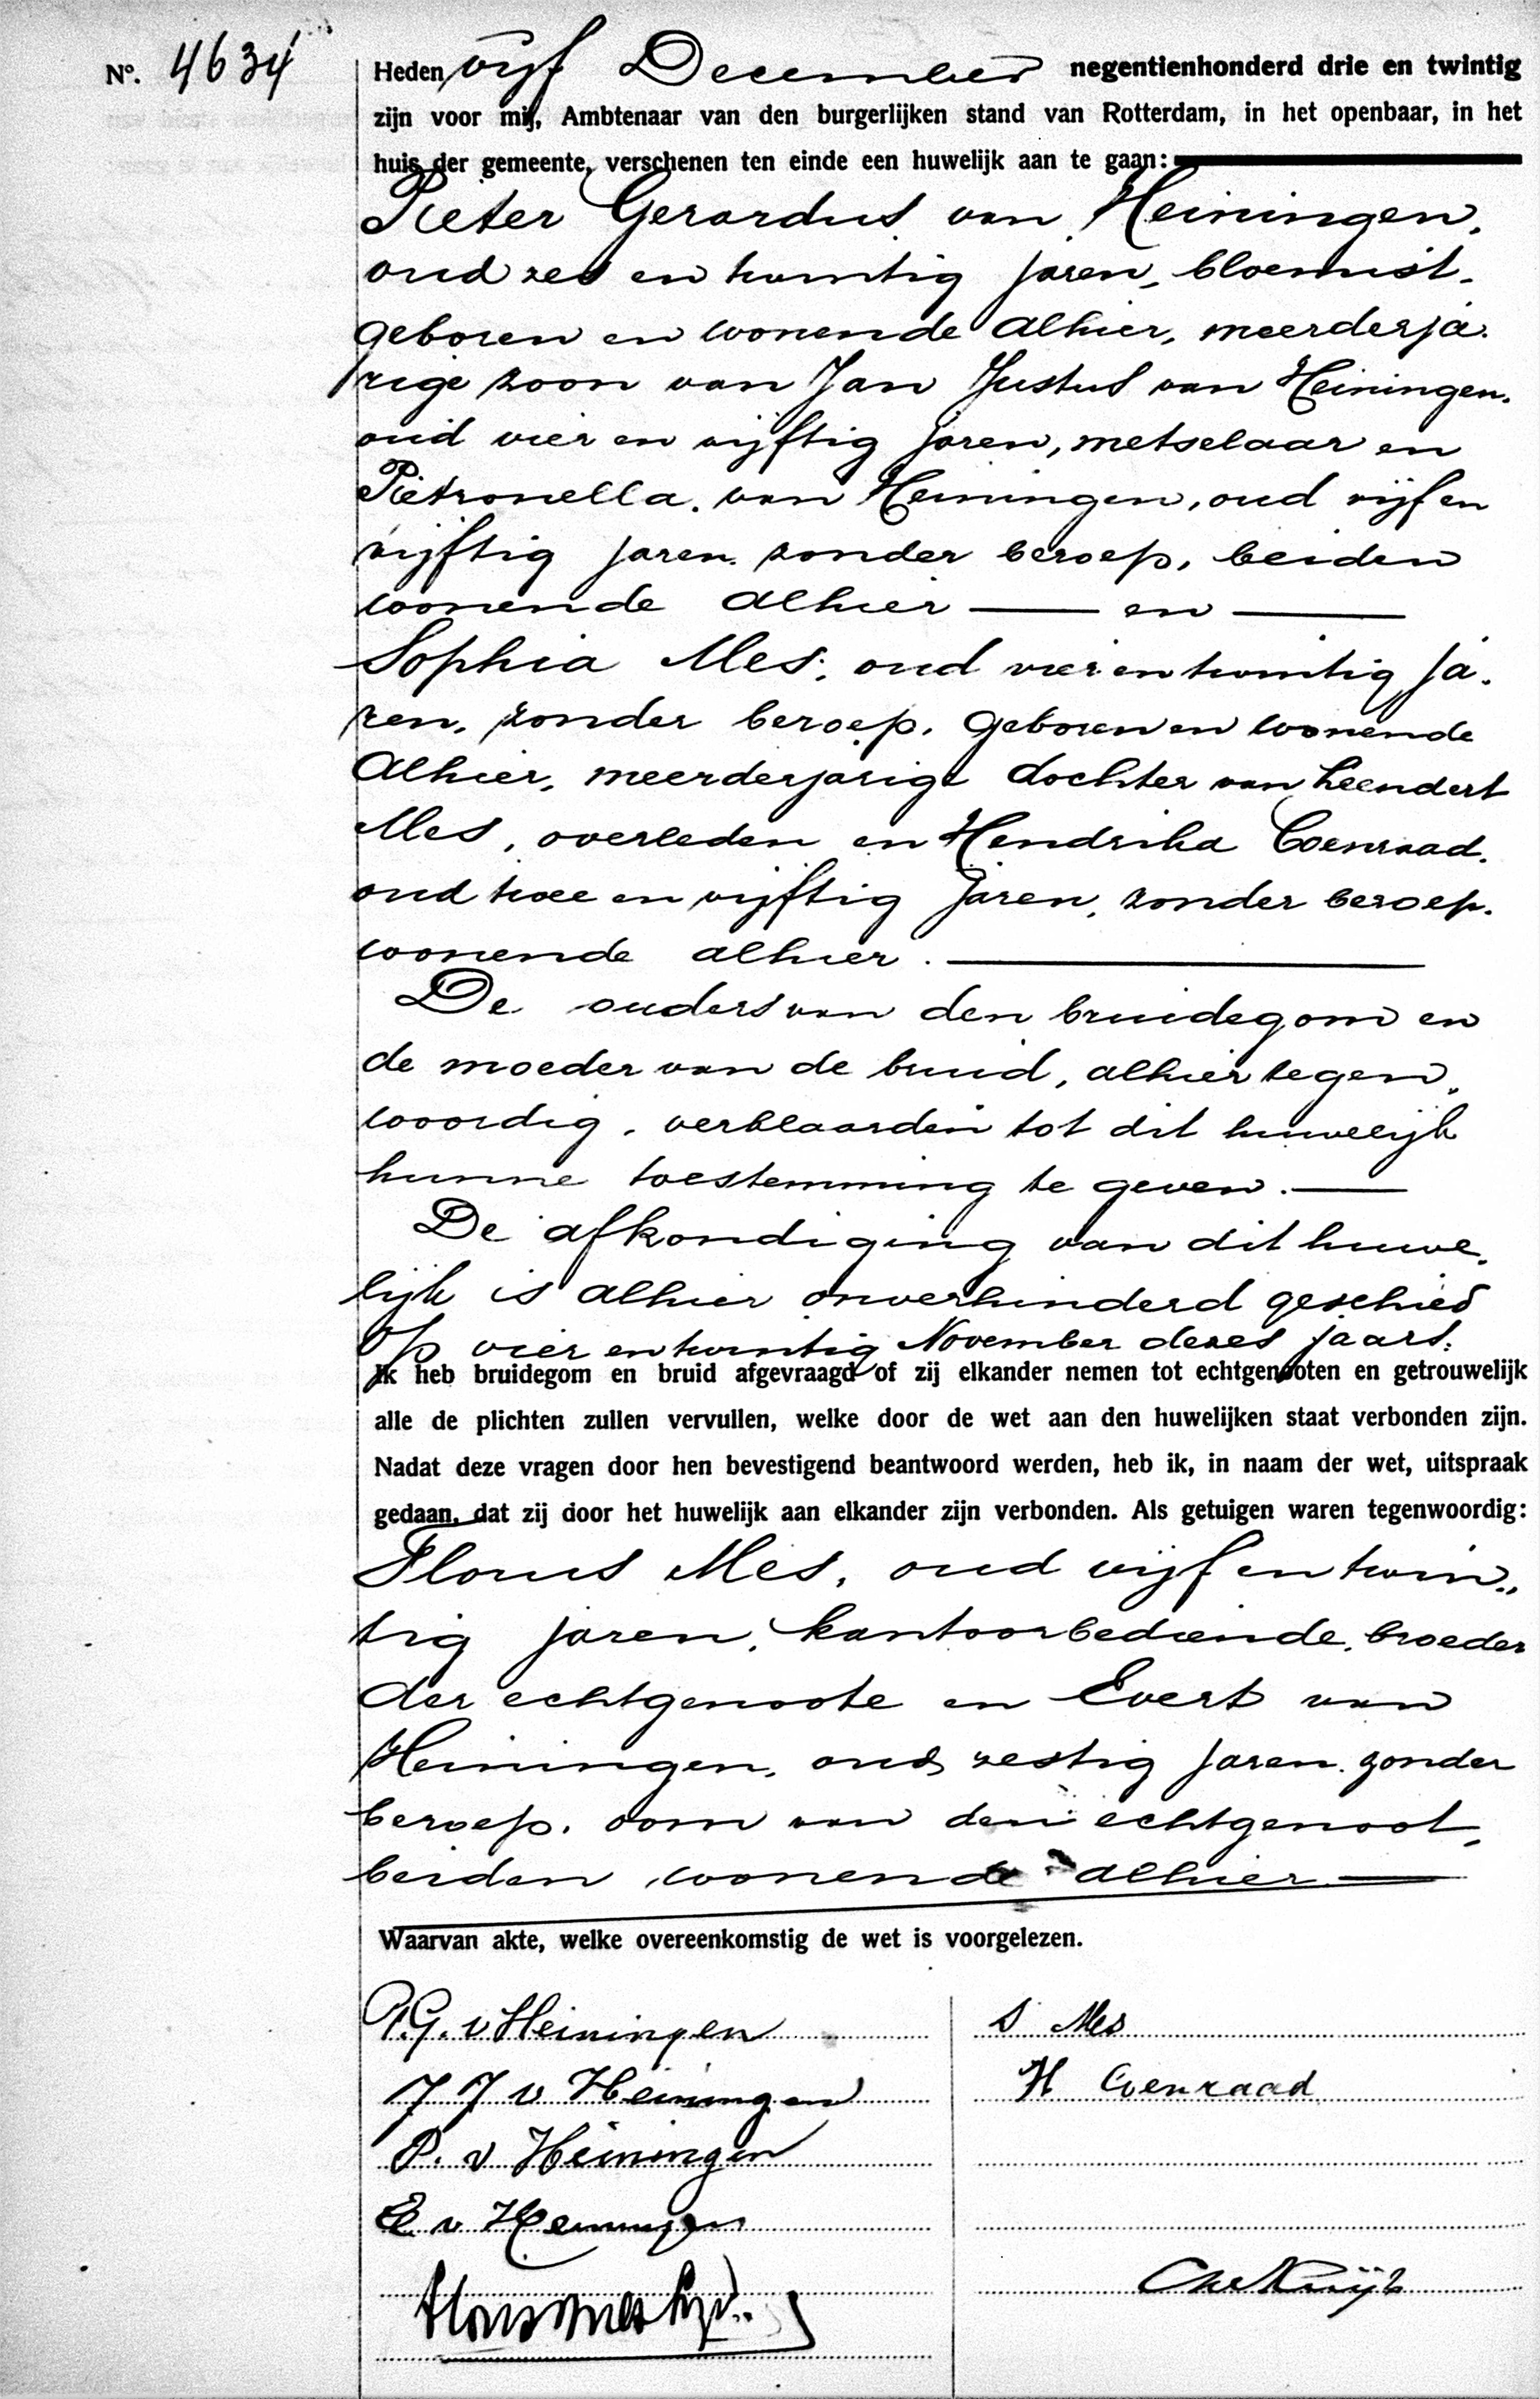 No. 4634
Heden vijf December negentienhonderd drie en twintig
zijn voor mij, Ambtenaar van den burgerlijken stand van Rotterdam, in het openbaar, in het
huis der gemeente, verschenen ten einde een huwelijk aan te gaan:
Pieter Gerardus van Heiningen,
oud zes en twintig jaren, bloemist,
geboren en wonende alhier, meerderja-
rige zoon van Jan Justus van Heiningen,
oud vier en vijftig jaren, metselaar en
Pietronella van Heiningen, oud vijf en
vijftig jaren, zonder beroep, beiden
wonende alhier — en —
Sophia Mes, oud vier en twintig ja-
ren, zonder beroep, geboren en wonende
alhier, meerderjarige dochter van Leendert
Mes, overleden en Hendrika Coenraad,
oud twee en vijftig jaren, zonder beroep,
wonende alhier. —
De ouders van den bruidegom en
de moeder van de bruid, alhier tegen-
woordig, verklaarden tot dit huwelijk
hunne toestemming te geven. —
De afkondiging van dit huwe-
lijk is alhier onverhinderd geschied
op vier en twintig November dezes jaars.
Ik heb bruidegom en bruid afgevraagd of zij elkander nemen tot echtgenooten en getrouwelijk
alle de plichten zullen vervullen, welke door de wet aan den huwelijken staat verbonden zijn.
Nadat deze vragen door hen bevestigend beantwoord werden, heb ik, in naam der wet, uitspraak
gedaan, dat zij door het huwelijk aan elkander zijn verbonden. Als getuigen waren tegenwoordig:
Florus Mes, oud vijf en twin-
tig jaren, kantoorbediende, broeder
der echtgenoote en Evert van
Heiningen, oud zestig jaren, zonder
beroep, oom van den echtgenoot,
beiden wonende alhier —
Waarvan akte, welke overeenkomstig de wet is voorgelezen.
P.G. v Heiningen
S Mes
J J v Heiningen
H Coenraad
P. v Heiningen
E v Heiningen